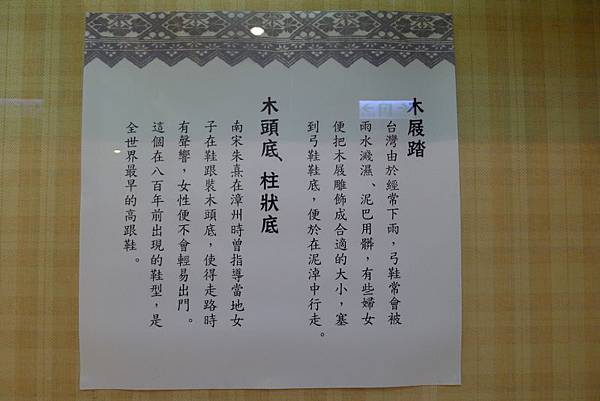 木屐踏
台灣由於經常下雨，弓鞋常會被
雨水濺濕、泥巴用髒，有些婦女
便把木屐雕飾成合適的大小，塞
到弓鞋鞋底，便於在泥淖中行走。
木頭底、柱狀底
南宋朱熹在漳州時曾指導當地女
子在鞋跟裝木頭底，使得走路時
有聲響，女性便不會輕易出門。
這個在八百年前出現的鞋型，是
全世界最早的高跟鞋。